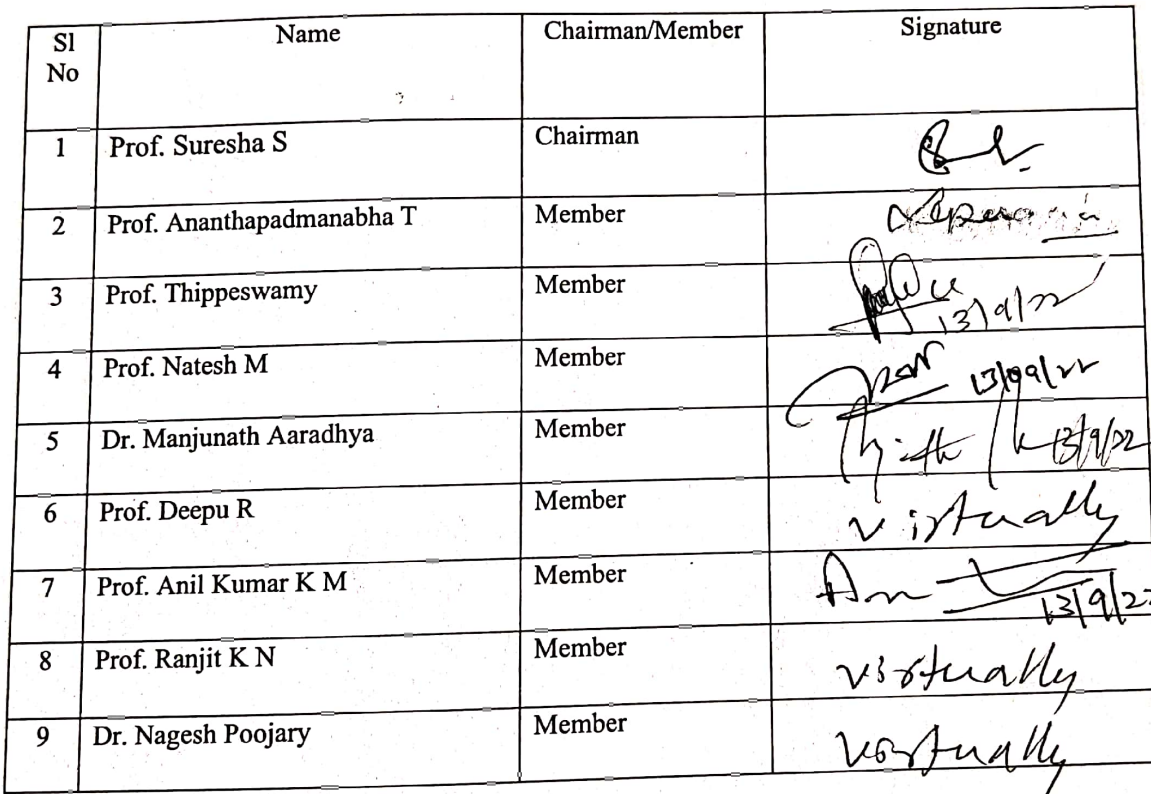 Sl No Name Chairman/Member Signature
1 Prof. Suresha S Chairman
2 Prof. Ananthapadmanabha T Member
3 Prof. Thippeswamy Member 13/9/22
4 Prof. Natesh M Member 13/09/22
5 Dr. Manjunath Aaradhya Member 13/9/22
6 Prof. Deepu R Member virtually
7 Prof. Anil Kumar K M Member 13/9/22
8 Prof. Ranjit K N Member virtually
9 Dr. Nagesh Poojary Member virtually